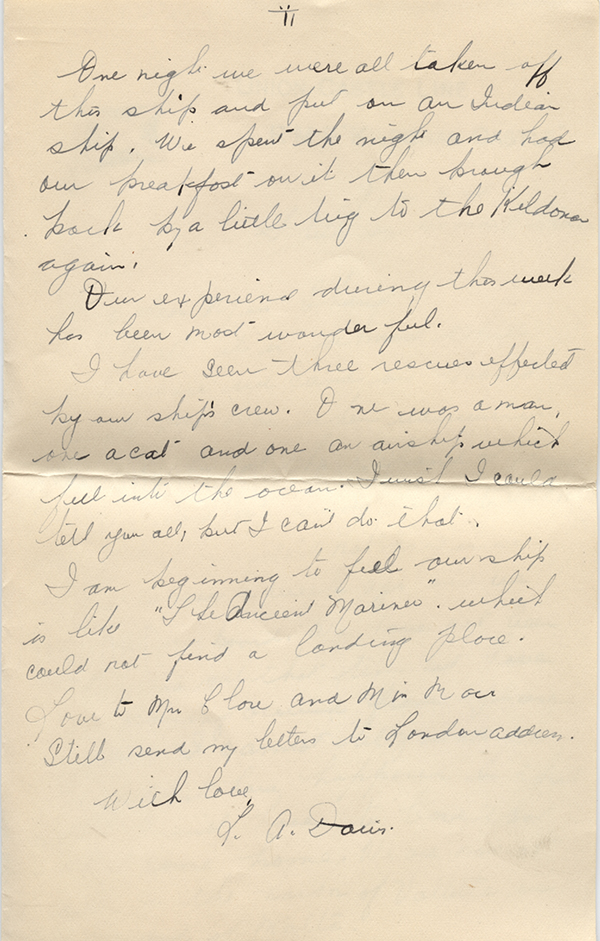 II
One night we were all taken off
this ship and put on an Indian
ship. We spent the night and had
our breakfast on it then brough
back by a little tug to the Kildonan
again.
Our experience during this week
has been most wonderful.
I have seen three rescues effected
by our ship's crew. One was a man,
one a cat and one an airship which
fell into the ocean. I wish I could
tell you all, but I can't do that.
I am beginning to feel our ship
is like "The Ancient Mariner". which
could not find a landing place.
Love to Mrs and Miss
Still send my letters to London address.
With love,
L. A. Davis.